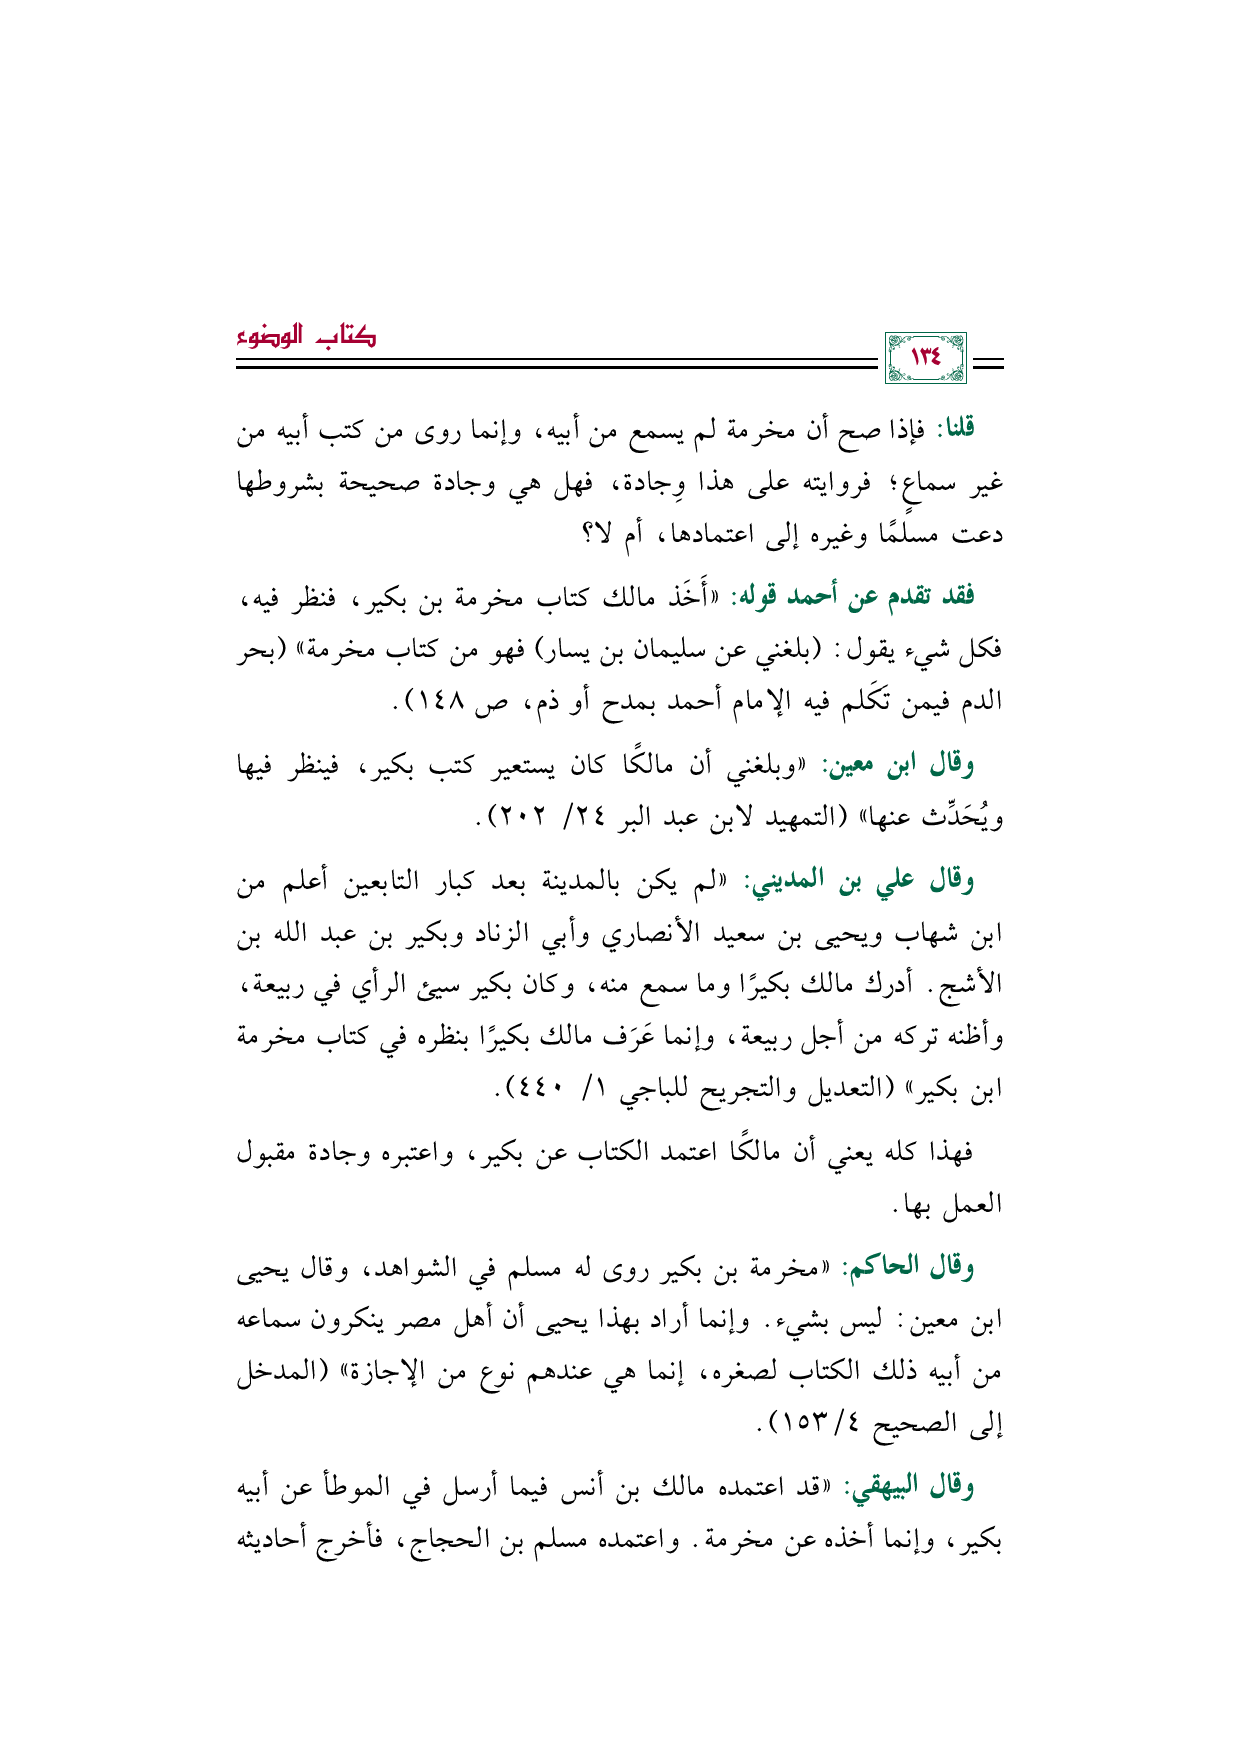 كتاب الوضوء
١٣٤
قلنا: فإذا صح أن مخرمة لم يسمع من أبيه، وإنما روى من كتب أبيه من
غير سماعٍ؛ فروايته على هذا وِجادة، فهل هي وجادة صحيحة بشروطها
دعت مسلمًا وغيره إلى اعتمادها، أم لا؟
فقد تقدم عن أحمد قوله: «أَخَذ مالك كتاب مخرمة بن بكير، فنظر فيه،
فكل شيء يقول: (بلغني عن سليمان بن يسار) فهو من كتاب مخرمة» (بحر
الدم فيمن تَكَلم فيه الإمام أحمد بمدح أو ذم، ص ١٤٨).
وقال ابن معين: «وبلغني أن مالكًا كان يستعير كتب بكير، فينظر فيها
ويُحَدِّث عنها» (التمهيد لابن عبد البر ٢٤/ ٢٠٢).
وقال علي بن المديني: «لم يكن بالمدينة بعد كبار التابعين أعلم من
ابن شهاب ويحيى بن سعيد الأنصاري وأبي الزناد وبكير بن عبد الله بن
الأشج. أدرك مالك بكيرًا وما سمع منه، وكان بكير سيئ الرأي في ربيعة،
وأظنه تركه من أجل ربيعة، وإنما عَرَف مالك بكيرًا بنظره في كتاب مخرمة
ابن بكير» (التعديل والتجريح للباجي ١/ ٤٤٠).
فهذا كله يعني أن مالكًا اعتمد الكتاب عن بكير، واعتبره وجادة مقبول
العمل بها.
وقال الحاكم: «مخرمة بن بكير روى له مسلم في الشواهد، وقال يحيى
ابن معين: ليس بشيء. وإنما أراد بهذا يحيى أن أهل مصر ينكرون سماعه
من أبيه ذلك الكتاب لصغره، إنما هي عندهم نوع من الإجازة» (المدخل
إلى الصحيح ٤/ ١٥٣).
وقال البيهقي: «قد اعتمده مالك بن أنس فيما أرسل في الموطأ عن أبيه
بكير، وإنما أخذه عن مخرمة. واعتمده مسلم بن الحجاج، فأخرج أحاديثه